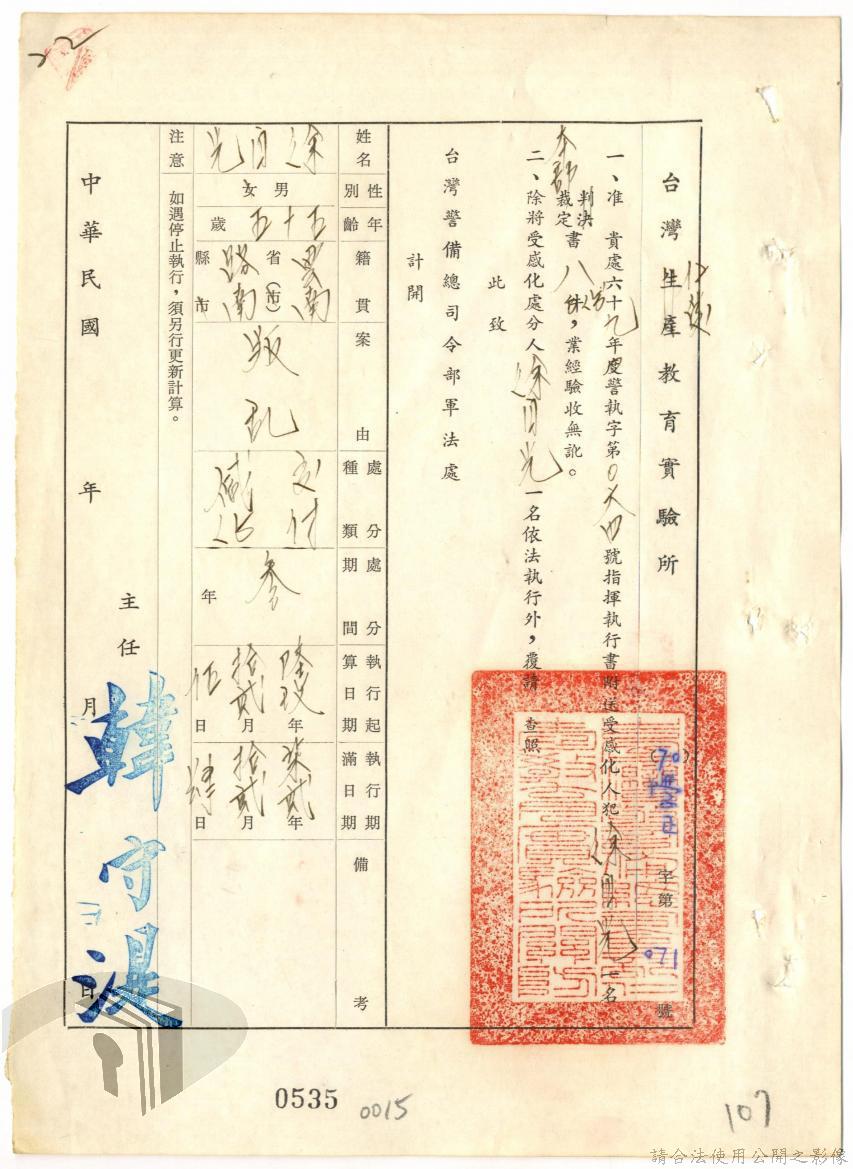 台灣仁愛生產教育實驗所
(70)學正字第071號
一、准 貴處六十九年度警執字第〇六四號指揮執行書附送受感化人犯徐自光一名
本部判決裁定書八份,業經驗收無訛。
二、除將受感化處分人徐自光一名依法執行外,覆請 查照
此致
台灣警備總司令部軍法處
計開
姓名 徐自光
性別 男女
年齡 五十五歲
籍貫 雲南省(市)路南縣市
案由 叛乱
處分種類 交付感化
處分期間 參年
執行起算日期 陸玖年拾貳月伍日
執行期滿日期 柒貳年拾貳月肆日
備考
注意 如遇停止執行,須另行更新計算。
主任 韓守湜
中華民國 年 月 日
0535
0015
107
請合法使用公開之影像